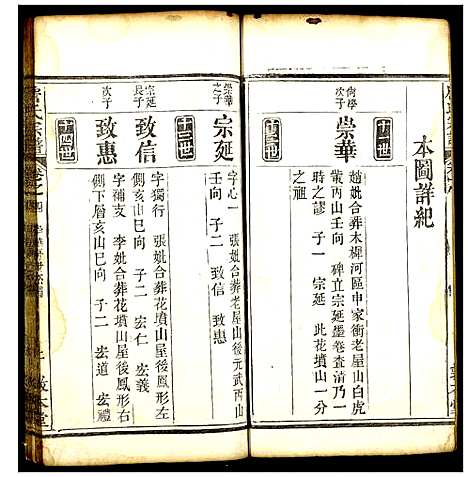 本圖詳紀
十二世
尚學次子
崇華
趙妣合葬木樨河區申家衝老屋山白虎
黨丙山壬向 碑立宗延墨卷查清乃一
時之謬 子一 宗延 此花墳山一分
之祖
十三世
崇華之子
宗延
字心一 張妣合葬老屋山後元武丙山
壬向 子二 致信 致惠
十四世
宗延長子
致信
字獨行 張妣合葬花墳山屋後鳳形左
側亥山巳向 子二 宏仁 宏義
次子
致惠
字補支 李妣合葬花墳山屋後鳳形右
側下層亥山巳向 子二 宏道 宏禮
敦本堂